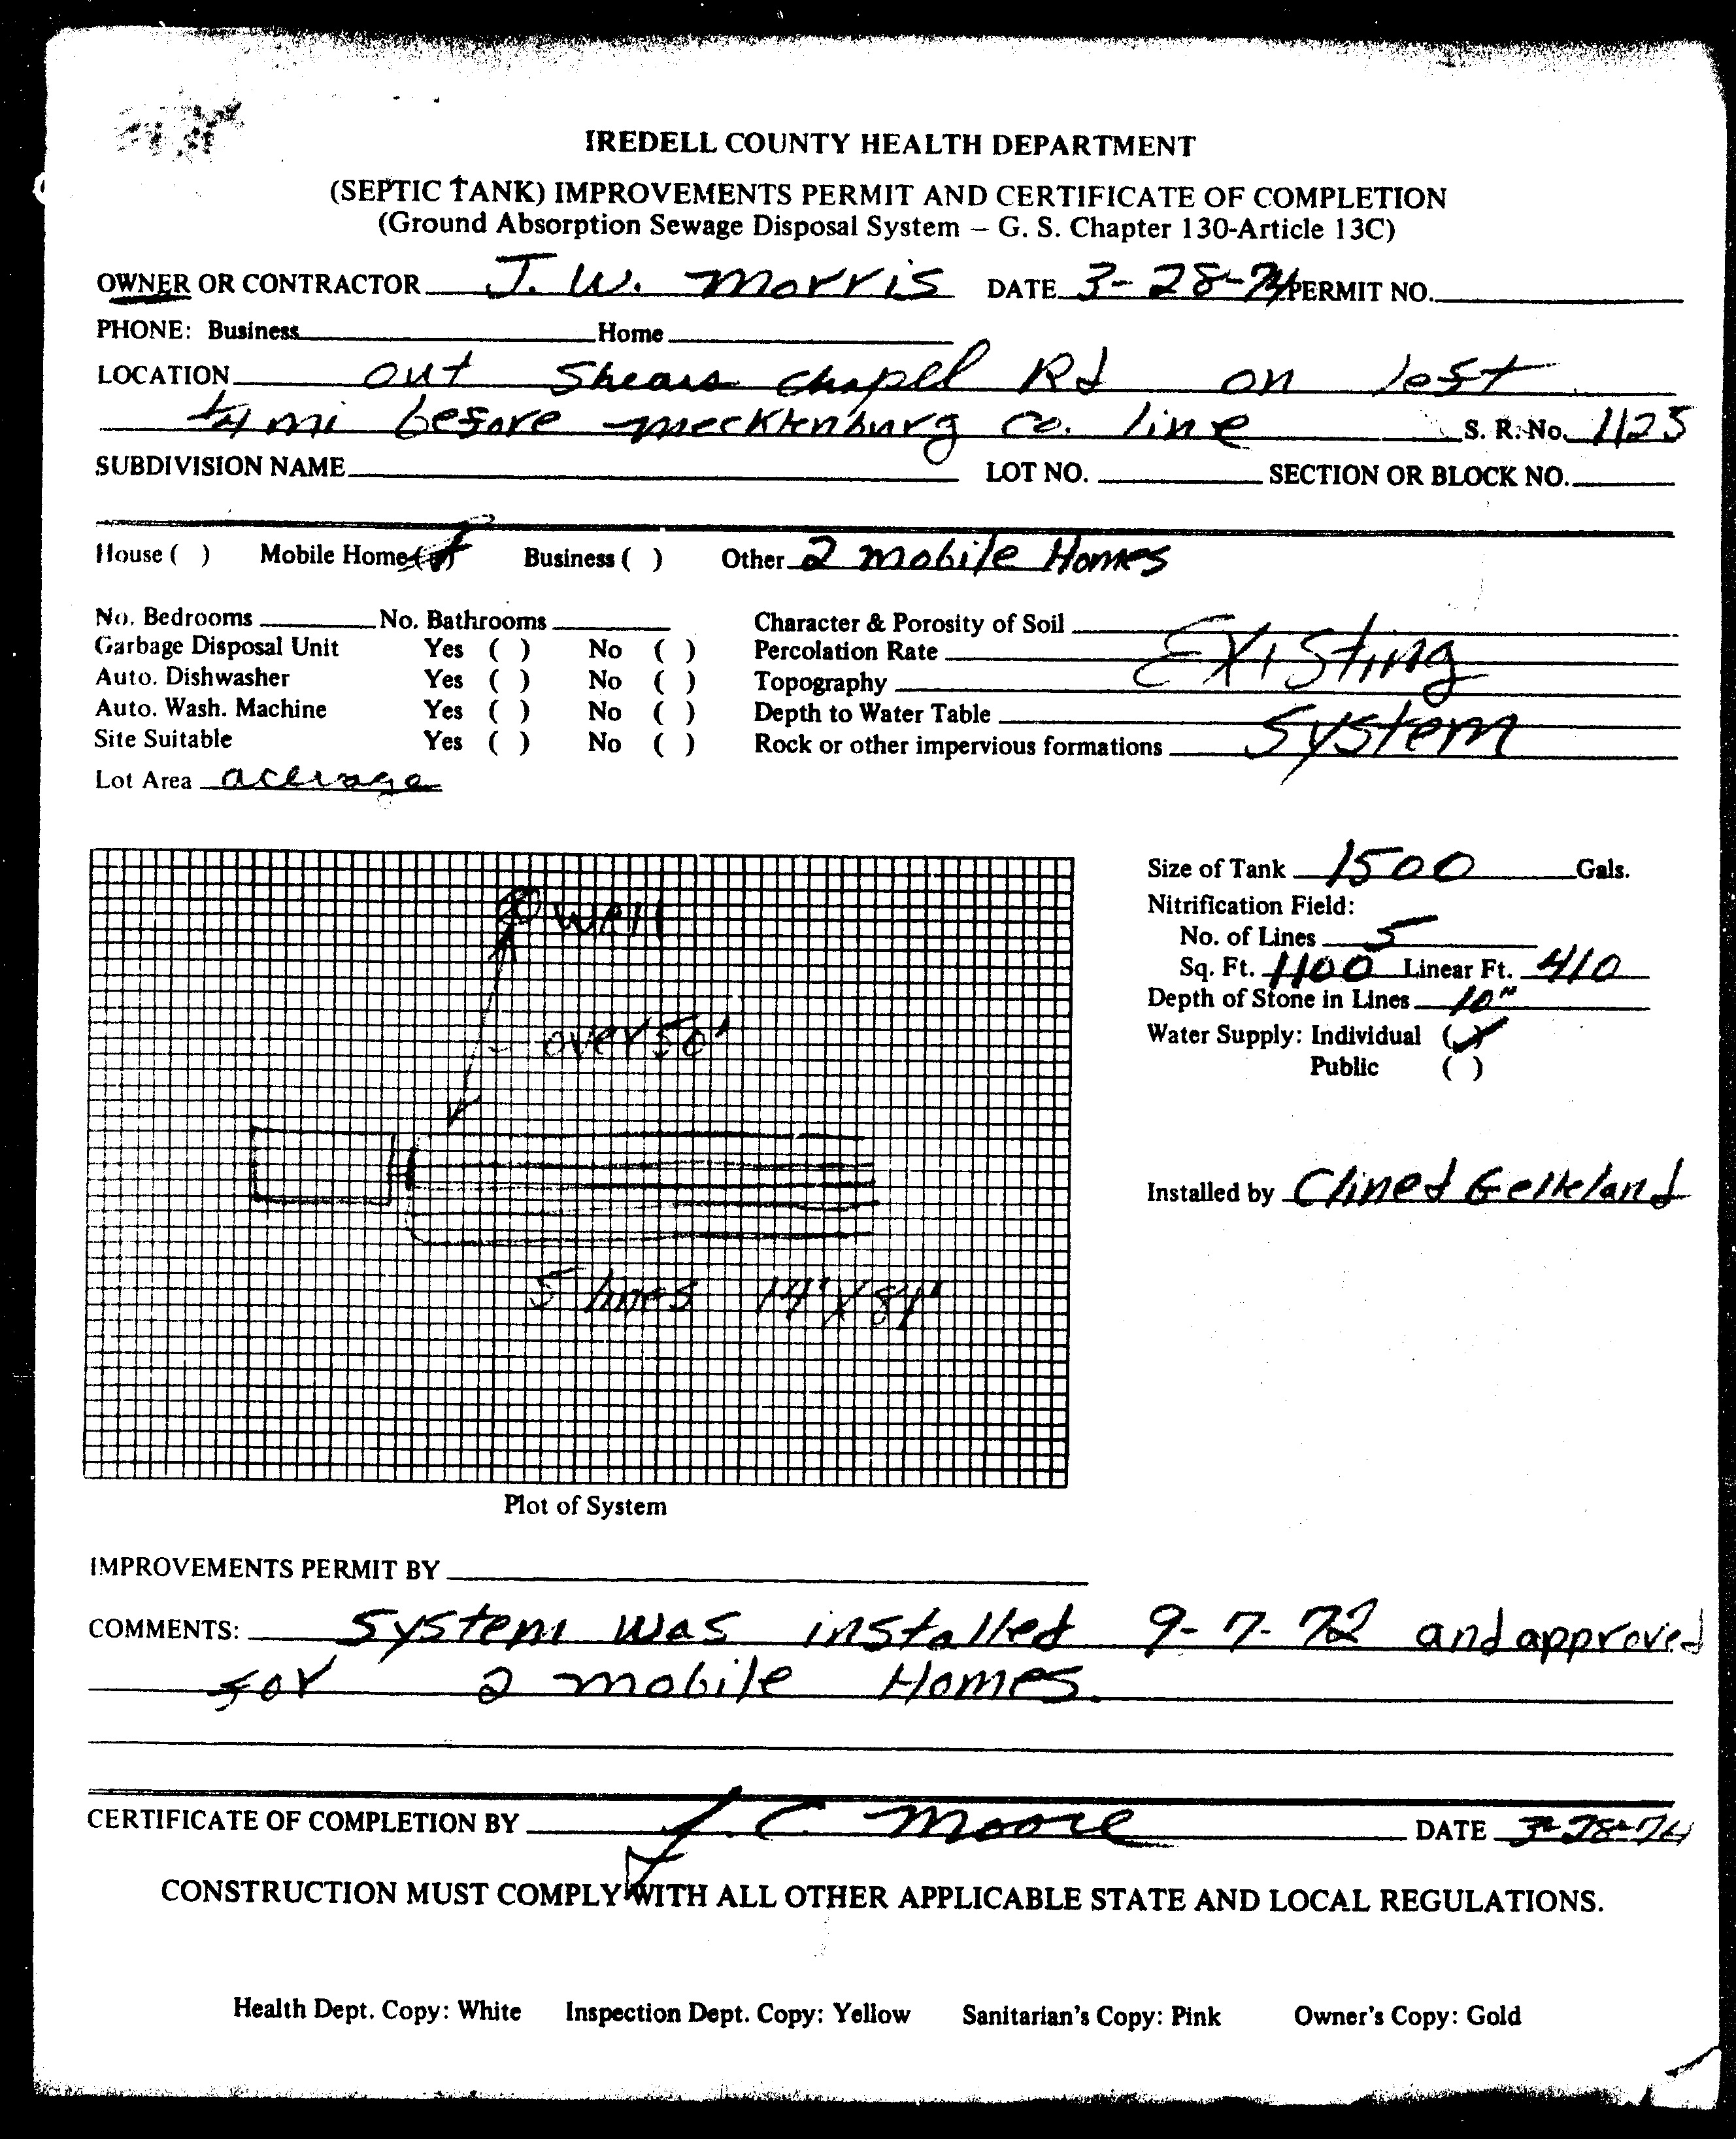 IREDELL COUNTY HEALTH DEPARTMENT
(SEPTIC TANK) IMPROVEMENTS PERMIT AND CERTIFICATE OF COMPLETION
(Ground Absorption Sewage Disposal System — G. S. Chapter 130-Article 13C)
OWNER OR CONTRACTOR J. W. Morris DATE 3-28-74 PERMIT NO.
PHONE: Business Home
LOCATION out Shears Chapel Rd on left
1/4 mi before Mecklenburg Co. line S. R. No. 1125
SUBDIVISION NAME LOT NO. SECTION OR BLOCK NO.
House ( ) Mobile Home ( ) Business ( ) Other 2 mobile Homes
No. Bedrooms No. Bathrooms Character & Porosity of Soil
Garbage Disposal Unit Yes ( ) No ( ) Percolation Rate Existing
Auto. Dishwasher Yes ( ) No ( ) Topography
Auto. Wash. Machine Yes ( ) No ( ) Depth to Water Table System
Site Suitable Yes ( ) No ( ) Rock or other impervious formations
Lot Area acerage
Size of Tank 1500 Gals.
Nitrification Field:
No. of Lines 5
Sq. Ft. 1100 Linear Ft. 410
Depth of Stone in Lines 10"
Water Supply: Individual (✓)
Public ( )
Installed by
well
over 50'
5 lines
Plot of System
IMPROVEMENTS PERMIT BY
COMMENTS: System was installed 9-7-72 and approved
for 2 mobile Homes.
CERTIFICATE OF COMPLETION BY J. C. Moore DATE 3-28-74
CONSTRUCTION MUST COMPLY WITH ALL OTHER APPLICABLE STATE AND LOCAL REGULATIONS.
Health Dept. Copy: White Inspection Dept. Copy: Yellow Sanitarian's Copy: Pink Owner's Copy: Gold